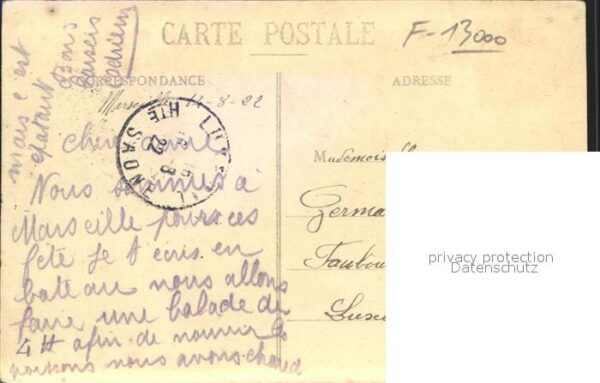 CARTE POSTALE
F-13000
CORRESPONDANCE
ADRESSE
Marseille 11-8-22
cher amie
Nous sommes à
Marseille pour ces
fête je t écris en
bateau nous allons
faire une balade de
4 H afin de nourrir les
poissons nous avons chaud
mais c est
épatant
Bons
baisers
Adrien
HTE SAONE
22
Mademoiselle
Germa
Faubou
Luxe
privacy protection
Datenschutz